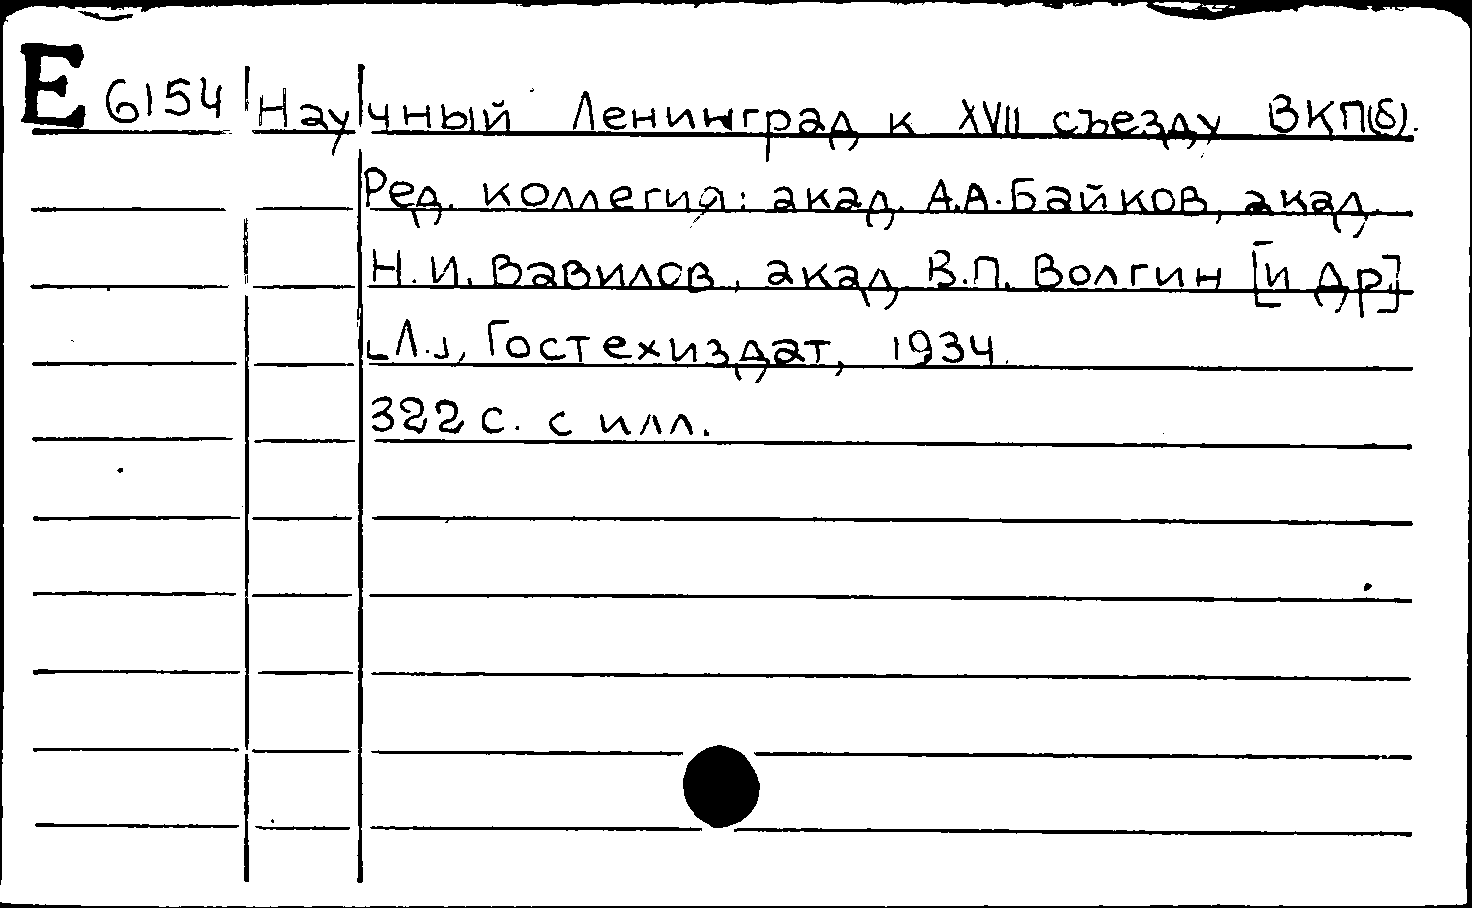 Е 6154 Научный Ленинград к XVII съезду ВКП(б).
Ред. коллегия: акад. А.А. Байков, акад.
Н.И. Вавилов, акад. В.П. Волгин [и др.]
[Л.], Гостехиздат, 1934.
322 с. с илл.